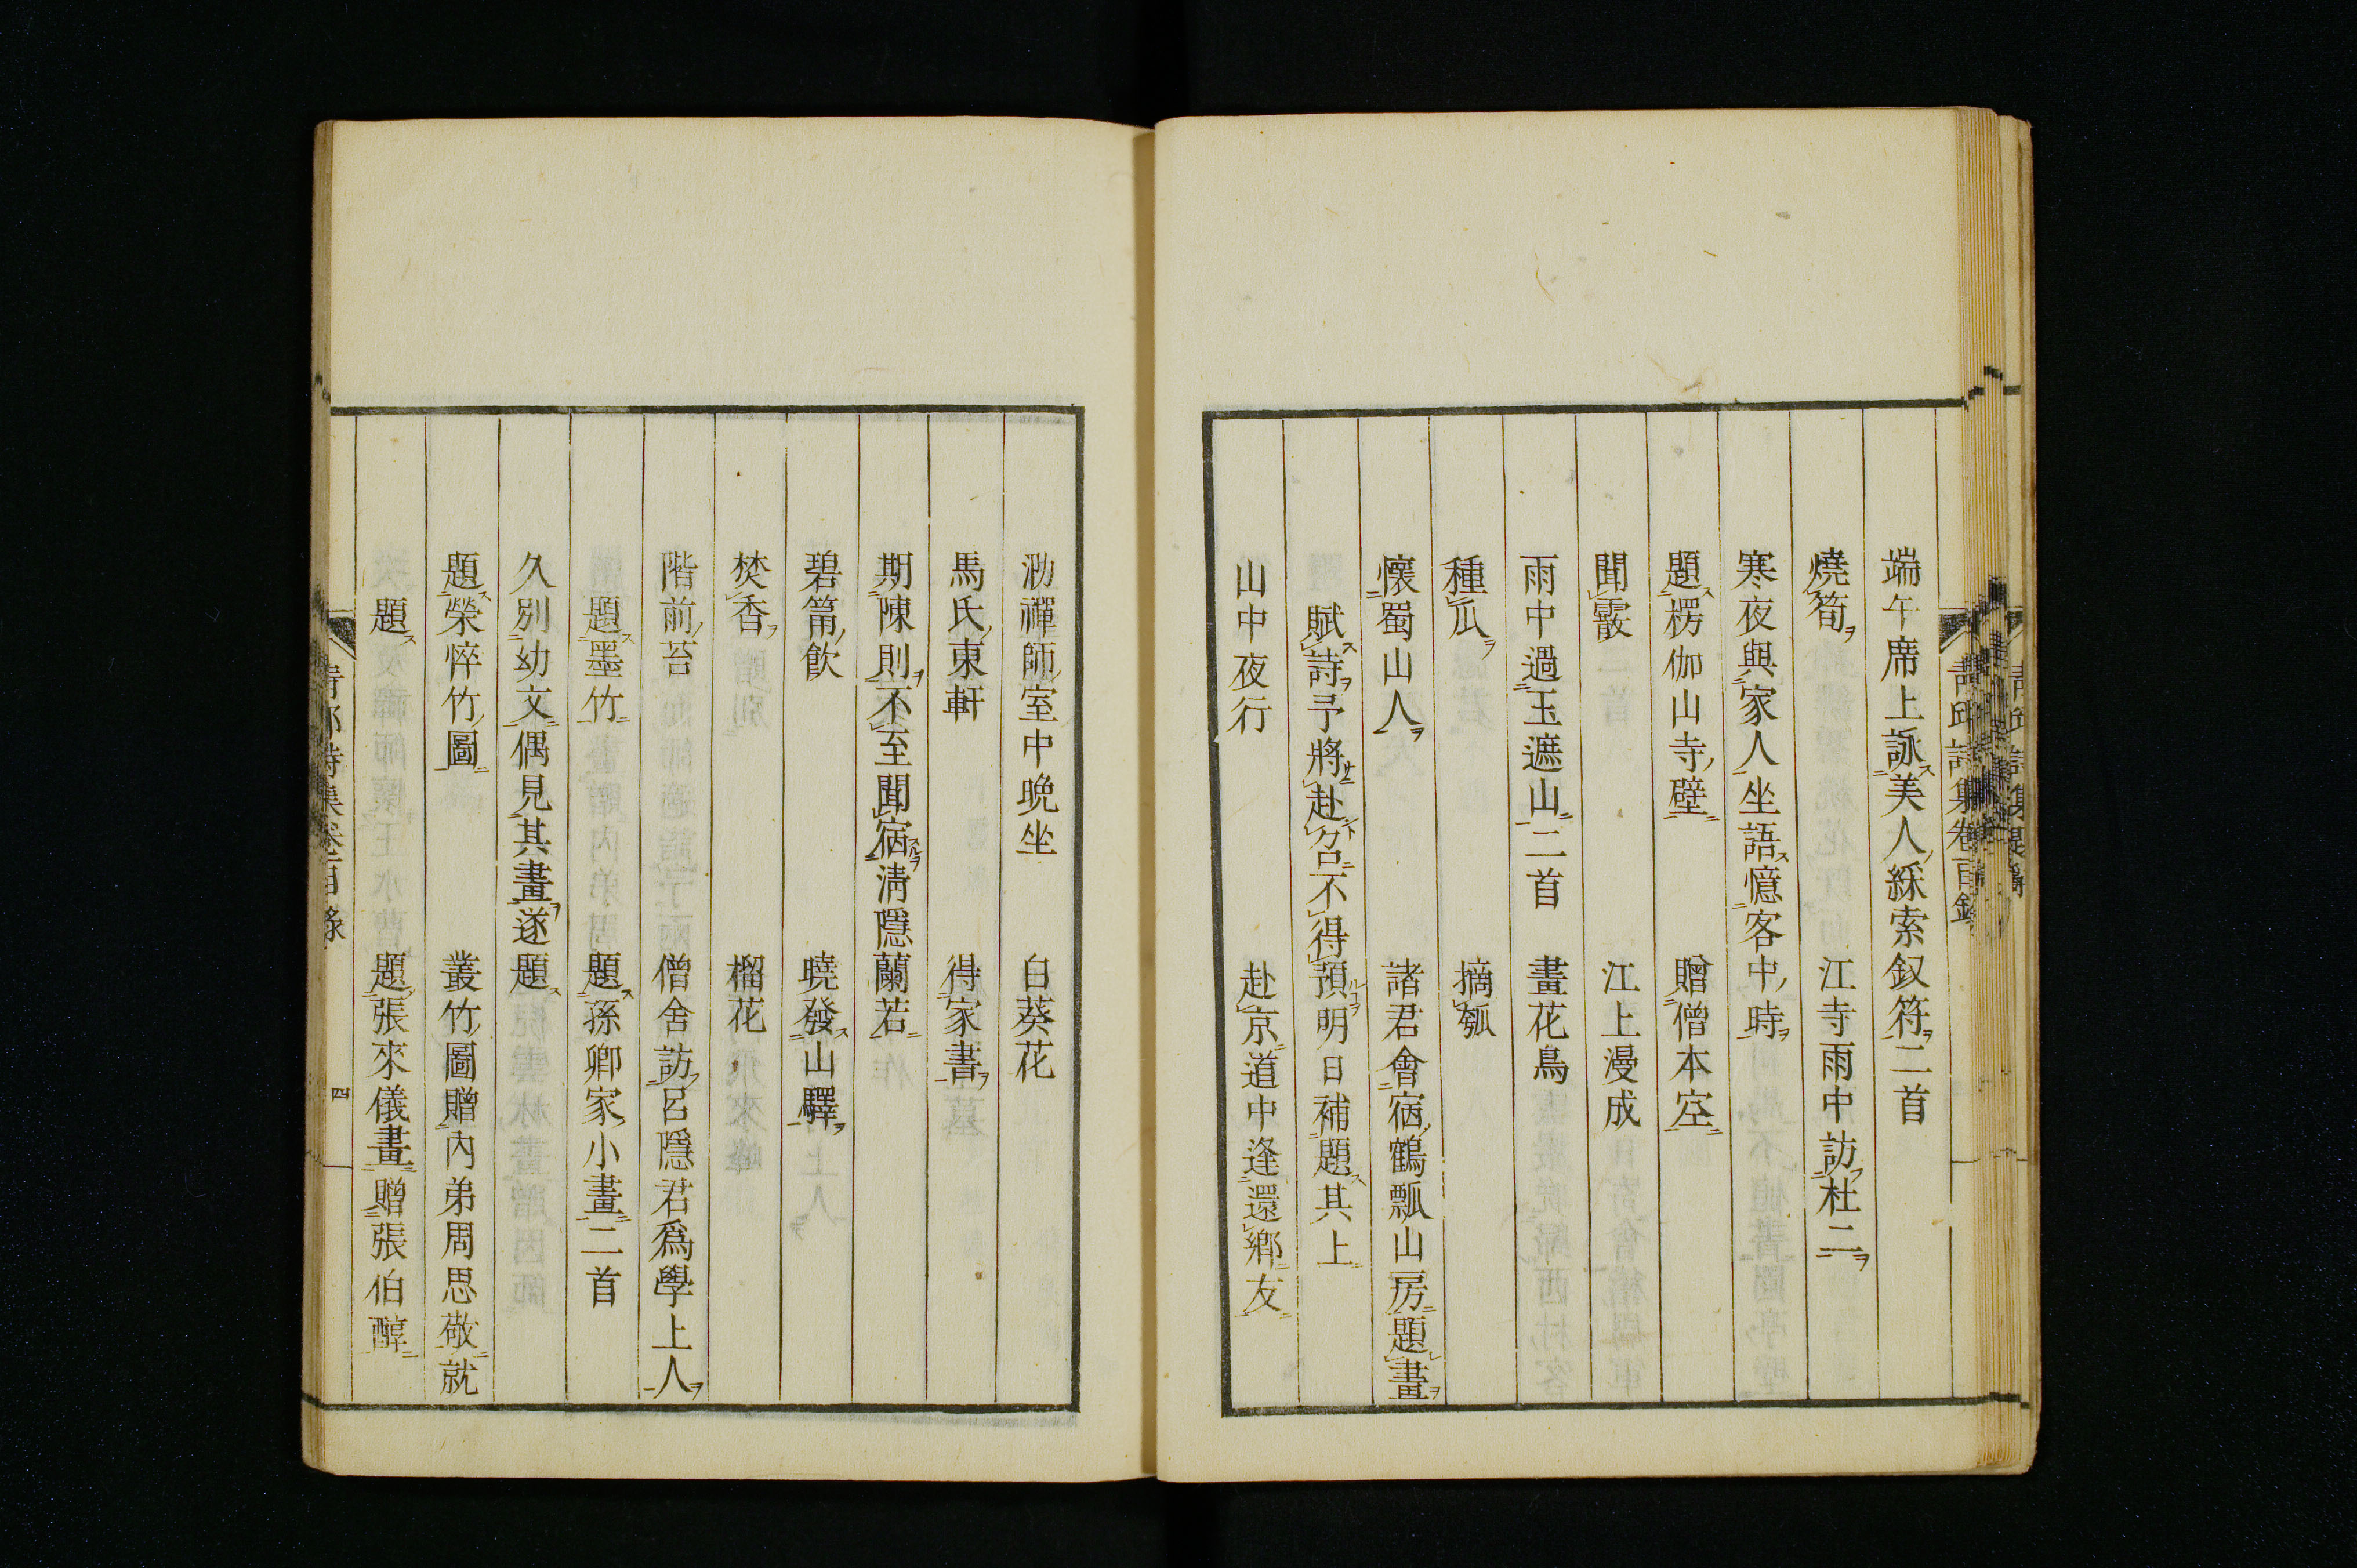 端午席上詠美人綵索釵符二首
燒筍　江寺雨中訪杜二
寒夜與家人坐語憶客中時
題楞伽山寺壁　贈僧本空
聞霰　江上漫成
雨中過玉遮山二首　畫花鳥
種瓜　摘瓠
懷蜀山人　諸君會宿鶴瓢山房題畫
賦詩予將赴召不得預明日補題其上
山中夜行　赴京道中逢還鄉友
泐禪師室中晩坐　白葵花
馬氏東軒　得家書
期陳則不至聞宿淸隱蘭若
碧筩飮　曉發山驛
焚香　榴花
階前苔　僧舍訪呂隱君爲學上人
題墨竹　題孫卿家小畫二首
久別幼文偶見其畫遂題
題榮悴竹圖　叢竹圖贈內弟周思敬就
題　題張來儀畫贈張伯醇
靑邱詩集卷目錄
四